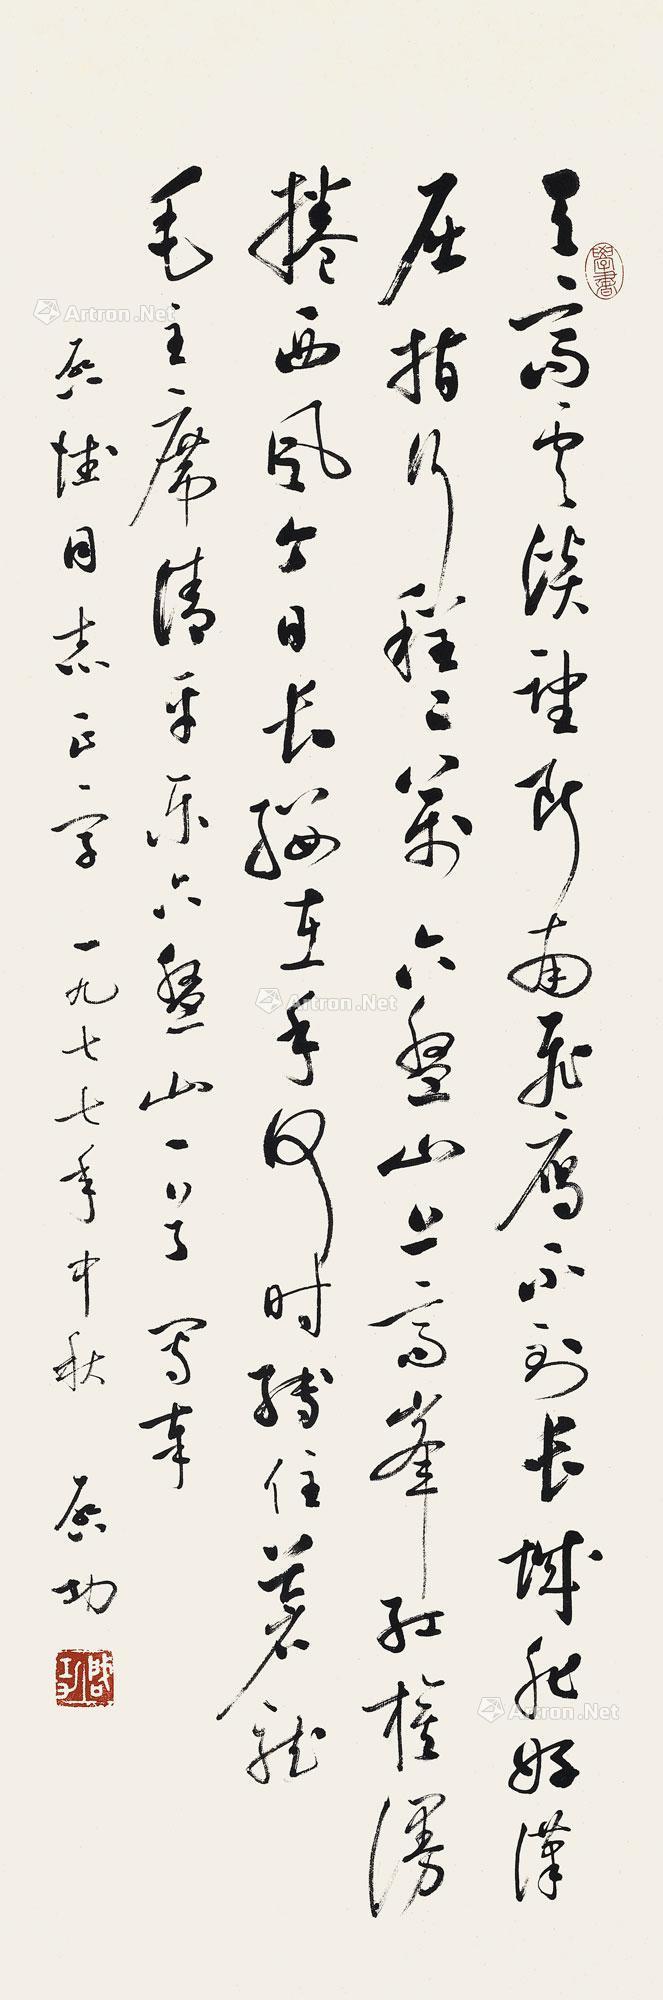 天高云淡望断南飞鹰不到长城非好汉
屈指行程二万六盘山上高峰红旗漫
捲西风今日长缨在手何时缚住苍龙
毛主席清平乐六盘山一首 写奉
同志正字 一九七七年中秋 启功
學書
启功
Artron.Net
Artron.Net
Artron.Net